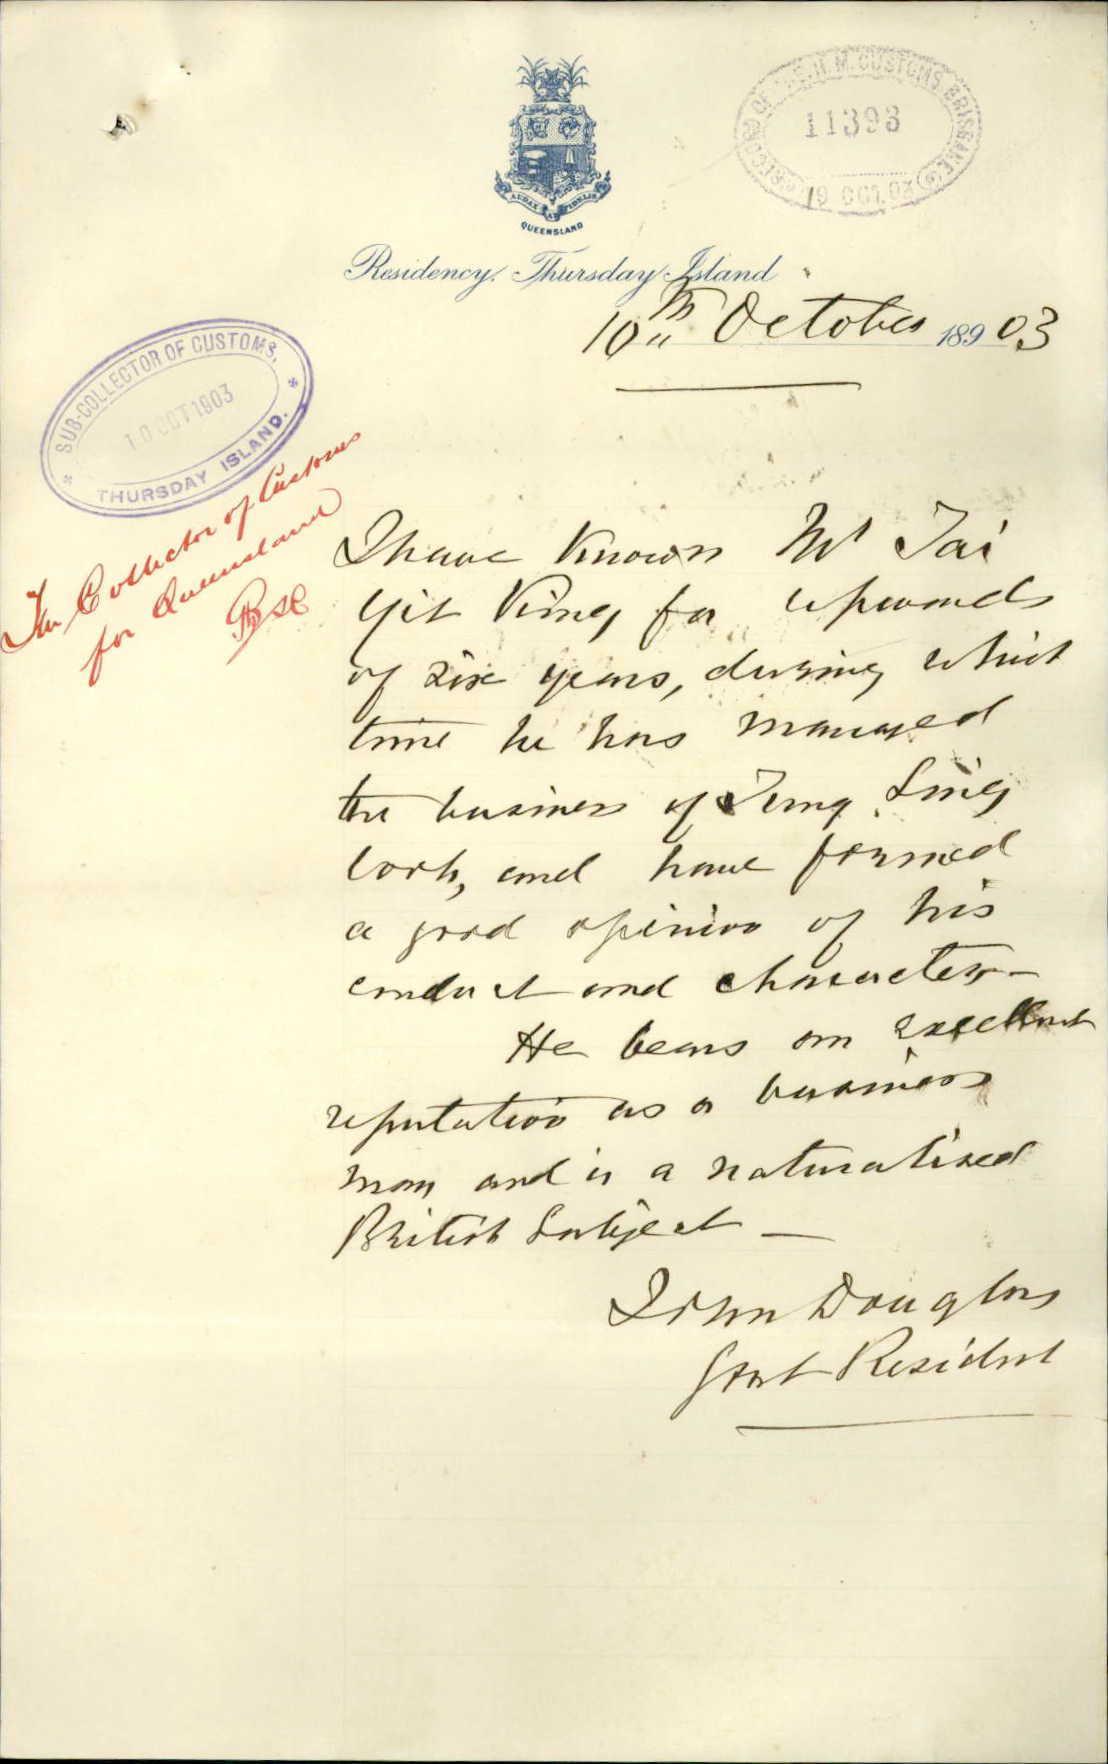 RECORD OF THE H.M. CUSTOMS BRISBANE
11393
19 OCT. 03
AUDAX AT FIDELIS
QUEENSLAND
Residency, Thursday Island
10th October 189 03
SUB-COLLECTOR OF CUSTOMS,
10 OCT 1903
THURSDAY ISLAND.
The Collector of Customs
for Queensland
I have known Mr Tai
Yit King for upwards
of six years, during which
time he has managed
the business of Tung Sing
and have formed
a good opinion of his
conduct and character –
He bears an excellent
reputation as a business
man and is a naturalised
British Subject —
John Douglas
Govt Resident